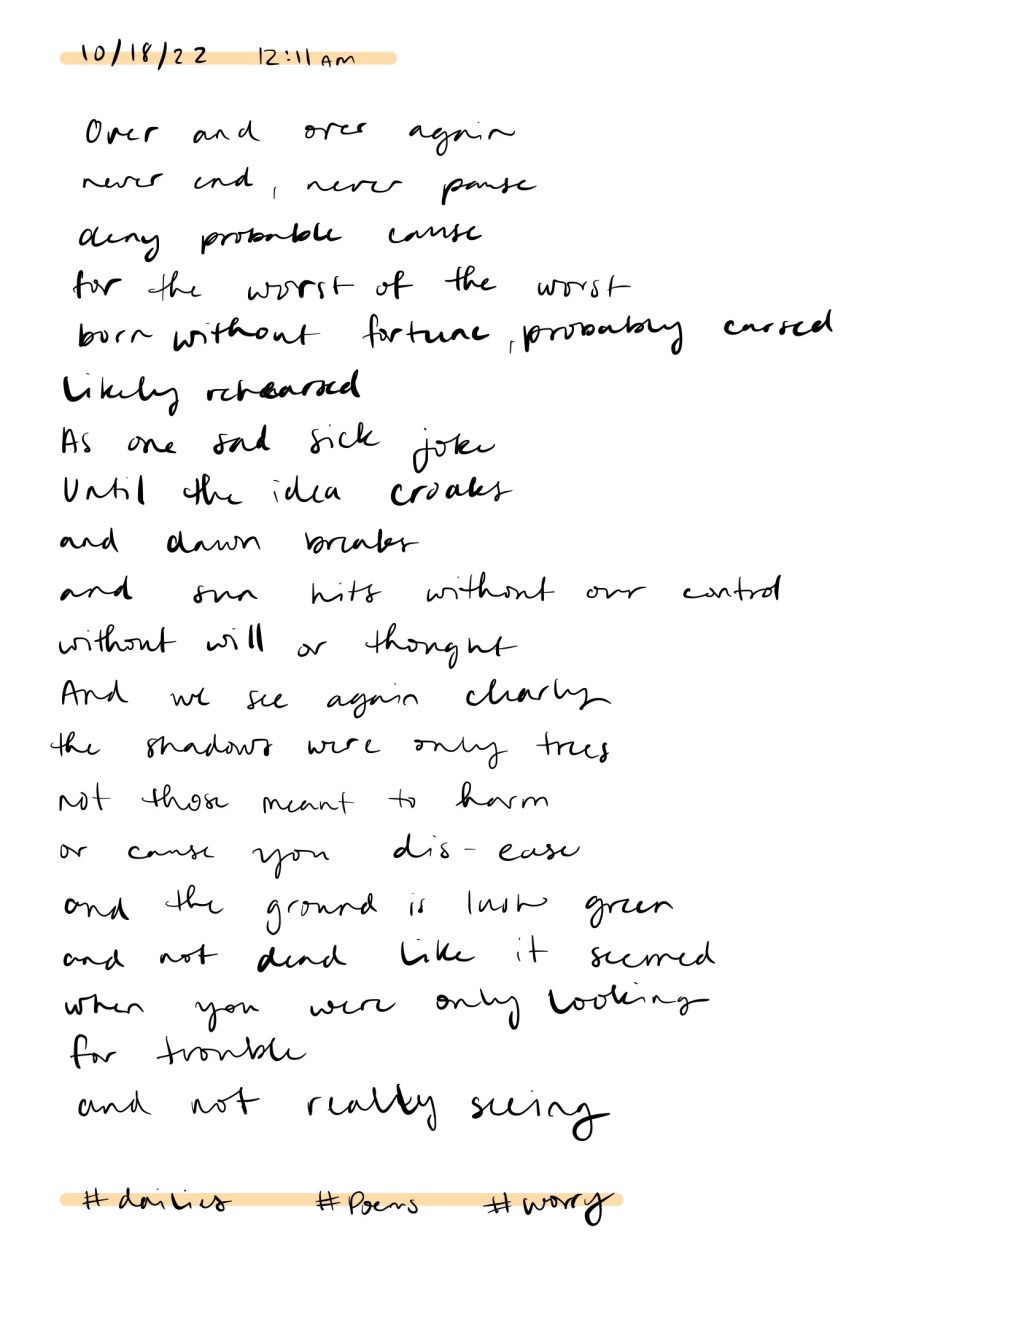 10/18/22 12:11 AM
Over and over again
never end, never pause
deny probable cause
for the worst of the worst
born without fortune, probably cursed
Likely rehearsed
As one sad sick joke
Until the idea croaks
and dawn breaks
and sun hits without our control
without will or thought
And we see again clearly
the shadows were only trees
not those meant to harm
or cause you dis-ease
and the ground is lush green
and not dead like it seemed
when you were only looking
for trouble
and not really seeing
#dailies #Poems #worry